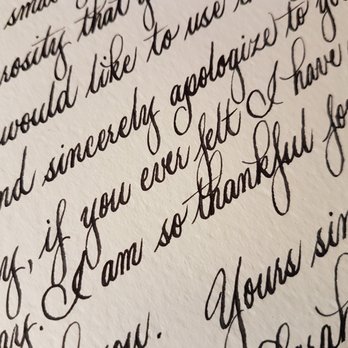 small
rosity that y
would like to use
nd sincerely apologize to yo
y, if you ever felt I have
ay. I am so thankful fo
you. Yours sin
Sarah